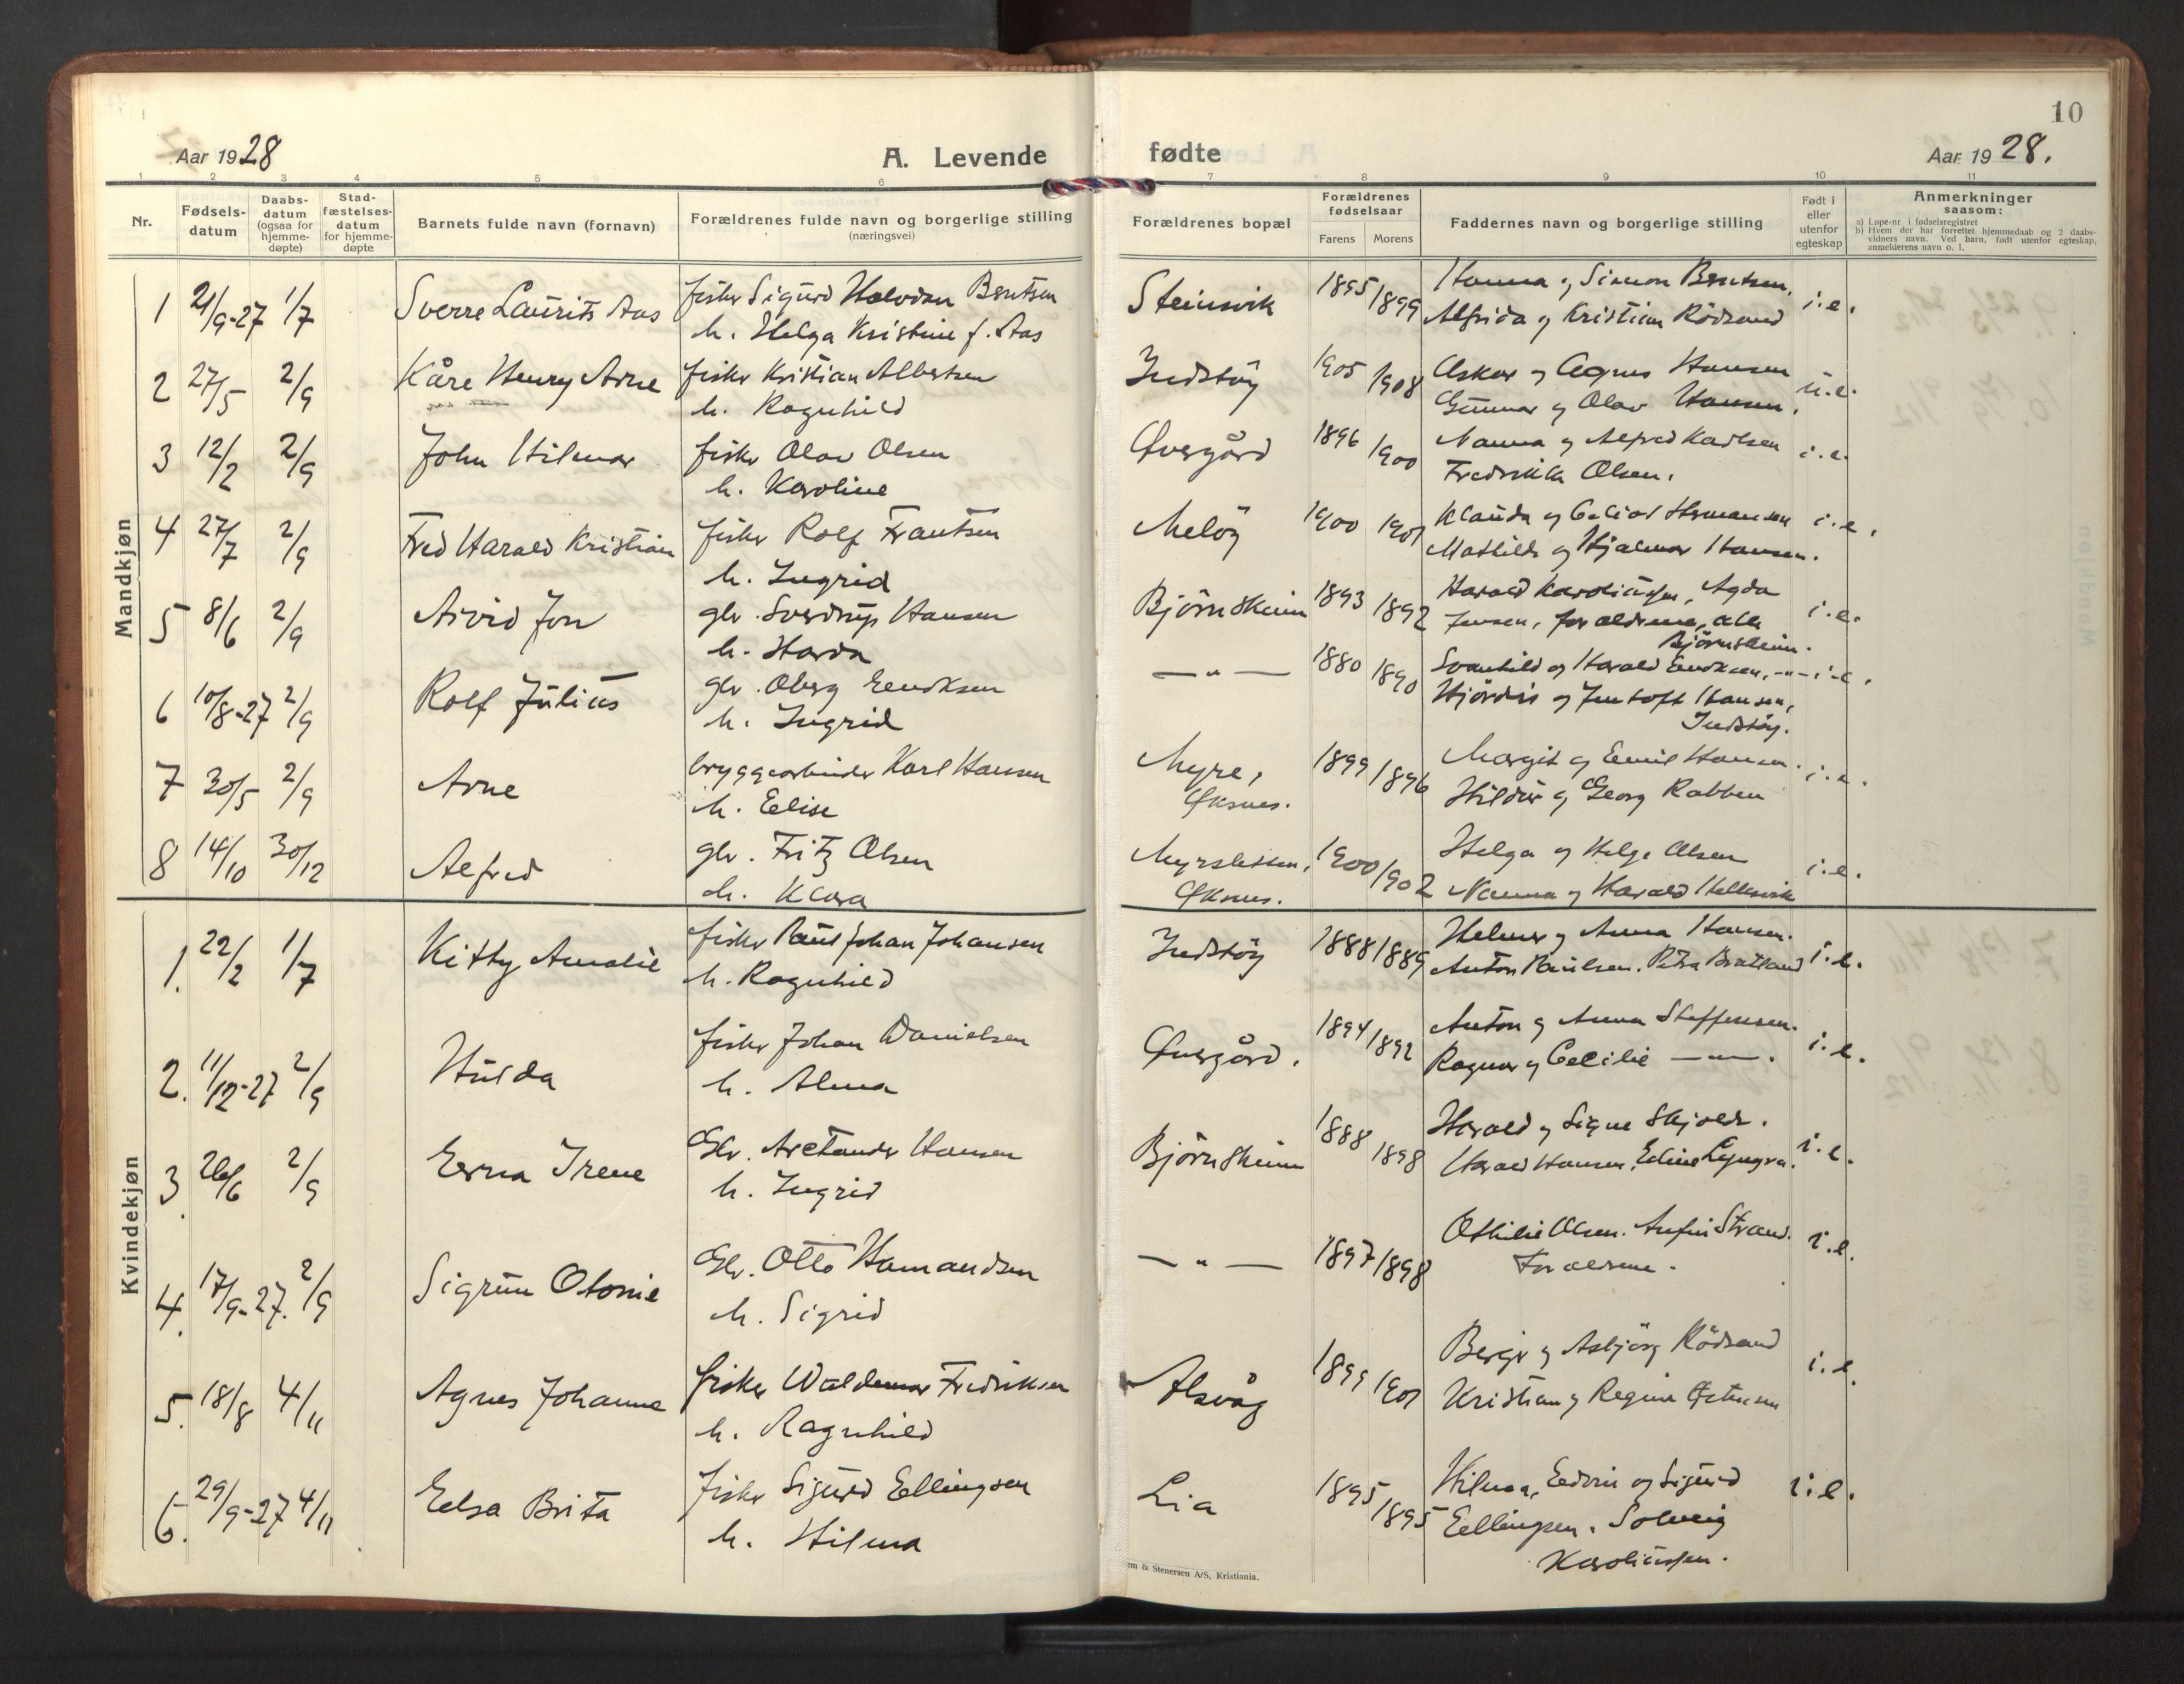 10
Aar 1928
A. Levende
fødte
Aar 1928.
1 2 3 4 5 6 7 8 9 10 11
Nr.
Fødsels-
datum
Daabs-
datum
(ogsaa for
hjemme-
døpte)
Stad-
fæstelses-
datum
for hjemme-
døpte
Barnets fulde navn (fornavn)
Forældrenes fulde navn og borgerlige stilling
(næringsvei)
Forældrenes bopæl
Forældrenes
fødselsaar
Farens Morens
Faddernes navn og borgerlige stilling
Født i
eller
utenfor
egteskap
Anmerkninger
saasom:
a) Løpe-nr i fødselsregistret
b) Hvem der har forrettet hjemmedaab og 2 daabs-
vidners navn. Ved barn, født utenfor egteskap,
anmelderens navn o. l.
Mandkjøn
1 21/9-27 1/7 Sverre Laurits Aas fisker Sigurd Halvdan Bentsen Steinsvik 1895 1899 Hanna og Simon Bentsen. i.e.
h. Helga Kristine f. Aas Alfrida og Kristian Rödsand
2 27/5 2/9 Kåre Henry Arne fisker Kristian Albertsen 1905 1908 Oskar og Agnes Hansen u.e.
h. Ragnhild Gunnar og Olav Hansen.
3 12/2 2/9 John Hilmar fisker Olav Olsen Övergård 1896 1900 Nanna og Alfred Karlsen i.e.
h. Karoline Fredrikke Olsen.
4 27/7 2/9 Fred Harald Kristian fisker Rolf Frantsen Melöy 1900 1901 Klauda og Hermansen i.e.
h. Ingrid Mathilde og Hjalmar Hansen.
5 8/6 2/9 Arvid Jon gbr. Sverdrup Hansen Björnskeim 1893 1892 Harald Karoliussen, Agda i.e.
h. Harda Jensen, foraldrene, alle
Björnskeim.
6 10/8-27 2/9 Rolf Julius gbr. Oberg Eendksen — " — 1880 1890 Svanhild og Harald Eendksen, -"- i.e.
h. Ingrid Hjördis og Jentoft Hansen,
7 30/5 2/9 Arne bryggearbeider Karl Hansen Myre, 1899 1896 Margit og Emil Hansen. i.e.
h. Elise Öksnes. Hildur og Georg Rabben
8 14/10 30/12 Alfred gbr. Fritz Olsen Myrsletten, 1900 1902 Helga og Helge Olsen i.e.
h. Klara Öksnes. Nanna og Harald
Kvindekjøn
1. 22/2 1/7 Kitty Amalie fisker Paul Johan Johansen 1888 1889 Helmer og Anna Hansen. i.e.
h. Ragnhild Anton Paulsen. Petra Bratland
2. 11/12-27 2/9 Hulda fisker Johan Danielsen Övergård. 1894 1892 Anton og Anna Steffensen. i.e.
h. Alma Ragnar og Cecilie — " —.
3. 26/6 2/9 Erna Irene Gbr. Arctander Hansen Björnskeim 1888 1898 Harald og Signe Skjolde. i.e.
h. Ingrid Harald Hansen, Eline Lyngra.
4. 17/9-27. 2/9 Sigrun Otonie Gbr. Otto Hamandsen — " — 1897 1898 Othilie Olsen. Arnfin Strand. i.e.
h. Sigrid Foraldrene.
5. 18/8 4/11 Agnes Johanne fisker Waldemar Fredriksen Alsvåg 1899 1901 Berge og Asbjörg Rödsand i.e.
h. Ragnhild Kristian og Regine
6. 29/9-27 4/11 Elsa Brita fisker Sigurd Ellingsen Lia 1895 1895 Hilma, Edvin og Sigurd i.e.
h. Hilma Ellingsen. Solveig
Karoliussen.
em & Stenersen A/S, Kristiania.